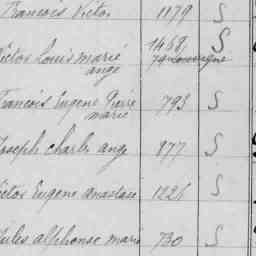 François Victor 1179 S
Victor Louis marie 1468 S
ange
François Eugene Pierre 793 S
marie
Joseph charles ange 877 S
Victor Eugene anastase S
Jules alphonse marie 730 S